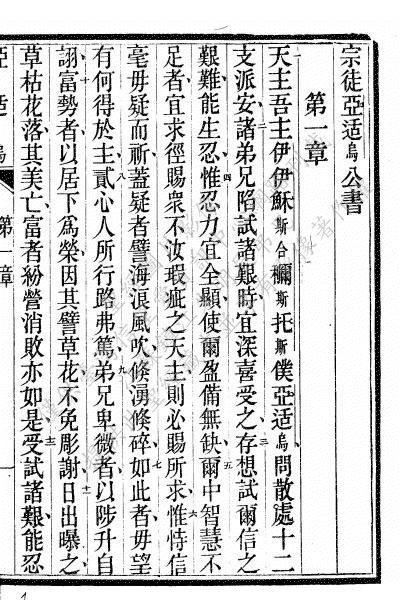 宗徒亞适烏公書
第一章
天主吾主伊伊穌斯合穪斯托斯僕亞适烏問散處十二
支派安二諸弟兄陷試諸艱時宜深喜受之三存想試爾信之
艱難能生忍四惟忍力宜全顯使爾盈備無缺五爾中智慧不
足者宜求徑賜眾不汝瑕疵之天主則必賜所求六惟恃信
毫毋疑而祈蓋疑者譬海浪風吹倏湧倏碎七如此者毋望
有何得於主八貳心人所行路弗篤九弟兄卑微者以陟升自
詡十富勢者以居下為榮因其譬草花不免彫謝十一日出曝之
草枯花落其美亡富者紛營消敗亦如是十二受試諸艱能忍
亞适烏
第一章
1